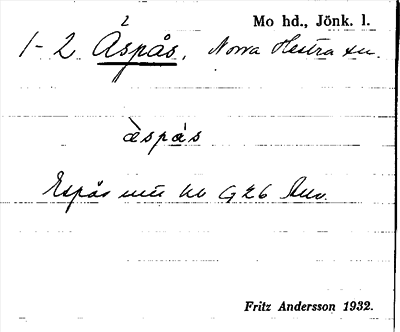 Mo hd., Jönk. l.
1-2 Åspås, Norra Hestra sn.
àspás
Espås G26
Fritz Andersson 1932.